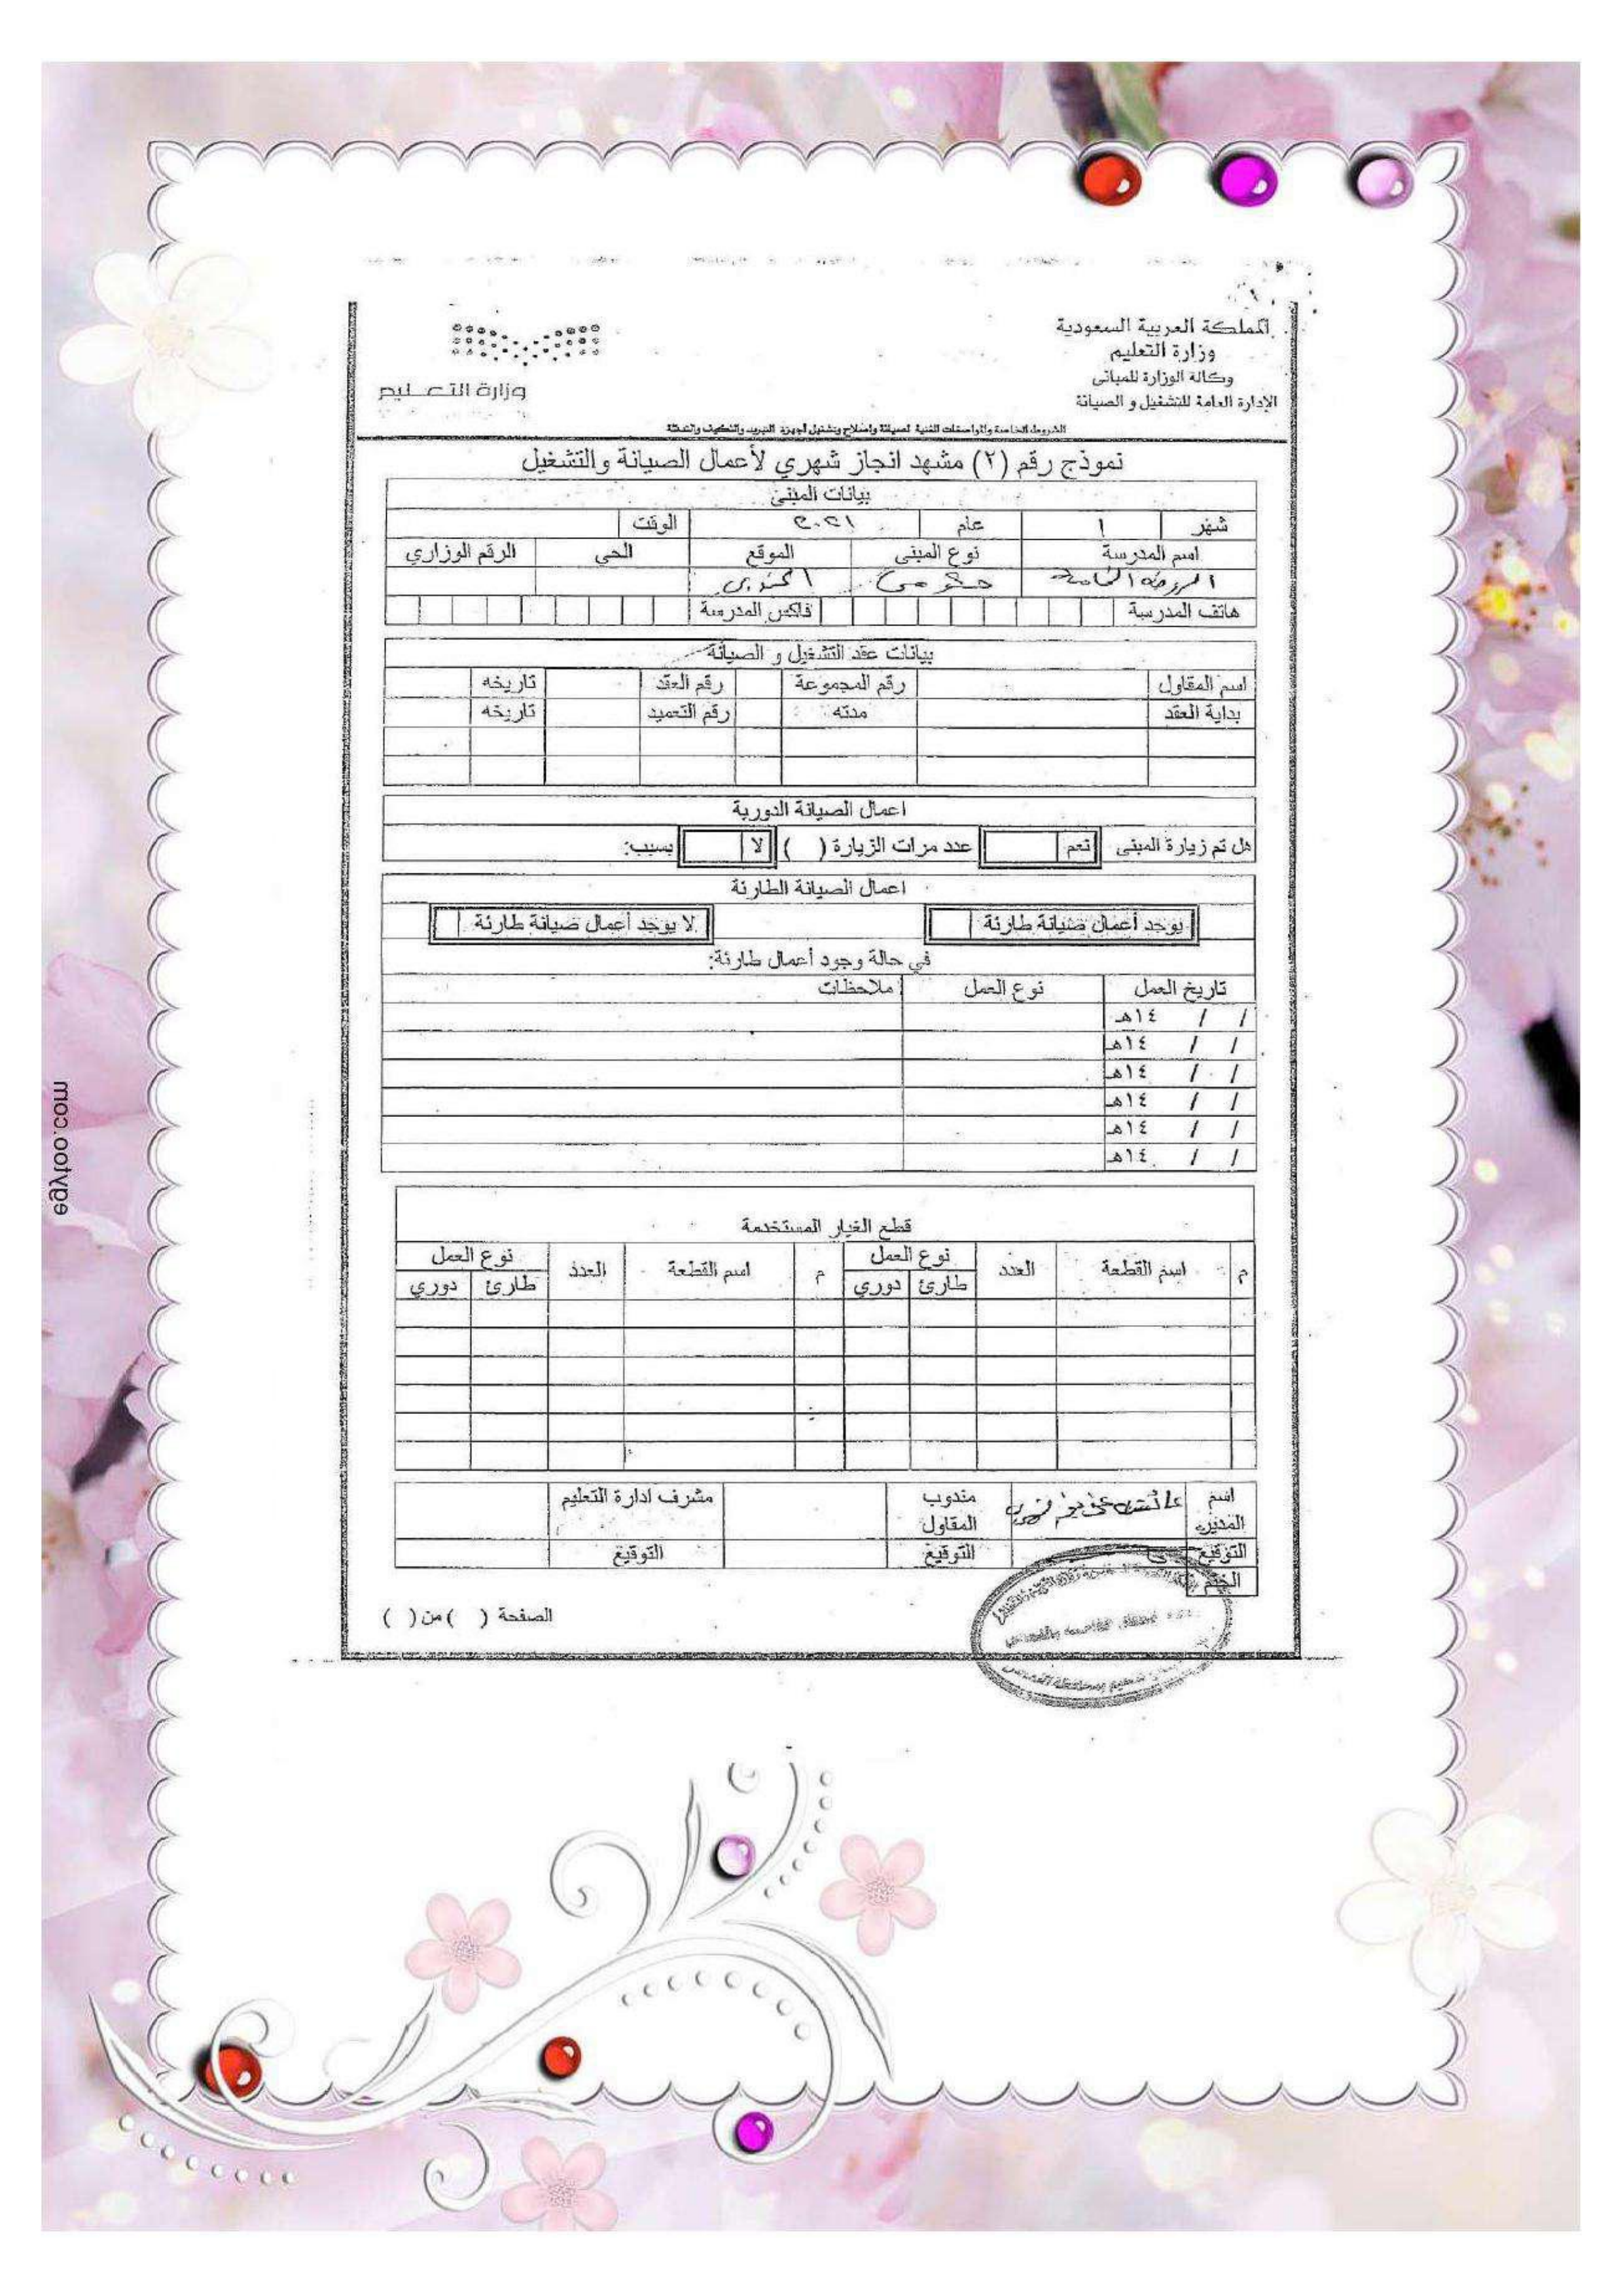 المملكة العربية السعودية
وزارة التعليم
وكالة الوزارة للمباني
الإدارة العامة للتشغيل و الصيانة
وزارة التعليم
الشروط الخاصة والمواصفات الفنية لصيانة وإصلاح وتشغيل أجهزة التبريد والتكييف والتدفئة
نموذج رقم (٢) مشهد انجاز شهري لأعمال الصيانة والتشغيل
بيانات المبنى
شهر ١ عام ٢٠٢١ الوقت
اسم المدرسة نوع المبنى الموقع الحي الرقم الوزاري
الروضة الخامسة حكومي
هاتف المدرسة فاكس المدرسة
بيانات عقد التشغيل و الصيانة
اسم المقاول رقم المجموعة رقم العقد تاريخه
بداية العقد مدته رقم التعميد تاريخه
اعمال الصيانة الدورية
هل تم زيارة المبنى نعم عدد مرات الزيارة ( ) لا بسبب:
اعمال الصيانة الطارئة
يوجد أعمال صيانة طارئة لا يوجد أعمال صيانة طارئة
في حالة وجود أعمال طارئة:
تاريخ العمل نوع العمل ملاحظات
/ / ١٤هـ
/ / ١٤هـ
/ / ١٤هـ
/ / ١٤هـ
/ / ١٤هـ
/ / ١٤هـ
قطع الغيار المستخدمة
م اسم القطعة العدد نوع العمل م اسم القطعة العدد نوع العمل
طارئ دوري طارئ دوري
اسم المديرة مندوب المقاول مشرف ادارة التعليم
التوقيع التوقيع التوقيع
الختم
الصفحة ( ) من ( )